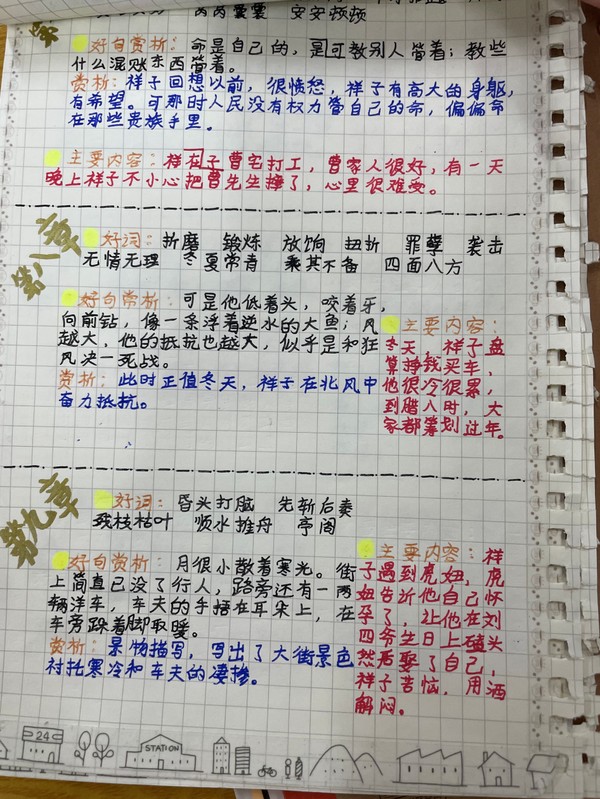 芮芮囊囊 安安顿顿
好句赏析：命是自己的，是可教别人管着；教些
什么混账东西管着。
赏析：祥子回想以前，很愤怒，祥子有高大的身躯，
有希望。可那时人民没有权力管自己的命，偏偏命
在那些贵族手里。
主要内容：祥在子曹宅打工，曹家人很好，有一天
晚上祥子不小心把曹先生摔了，心里很难受。
第八章
好词：折磨 锻炼 放饷 扭折 罪孽 袭击
无情无理 冬夏常青 乘其不备 四面八方
好句常析：可是他低着头，咬着牙，
向前钻，像一条浮着逆水的大鱼；风
越大，他的抵抗也越大，似乎是和狂
风决一死战。
赏析：此时正值冬天，祥子在北风中
奋力抵抗。
主要内容：
冬天，祥子盘
算挣钱买车，
他很冷很累，
到腊八时，大
家都筹划过年。
第九章
好词：昏头打脑 先斩后奏
残枝枯叶 顺水推舟 亭阁
好句赏析：月很小散着寒光。街
上简直已没了行人，路旁还有一两
辆洋车，车夫的手捂在耳朵上，在
车旁跺着脚取暖。
赏析：景物描写，写出了大街景色
衬托寒冷和车夫的凄惨。
主要内容：祥
子遇到虎妞，虎
妞告诉他自己怀
孕了，让他在刘
四爷生日上磕头
然后娶了自己，
祥子苦恼，用酒
解闷。
24
STATION